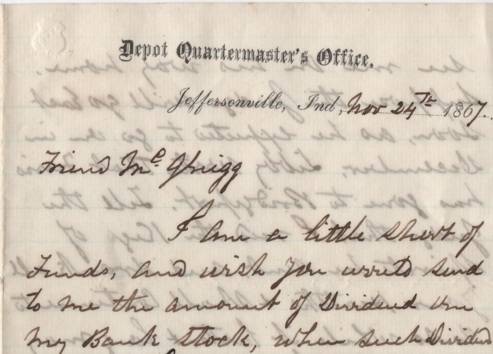 Depot Quartermaster's Office.
Jeffersonville, Ind, Nov 24th 1867.
Friend Mc Grigg
I am a little short of
Funds, and wish you would send
to me the amount of Dividend on
my Bank stock, when such Dividend